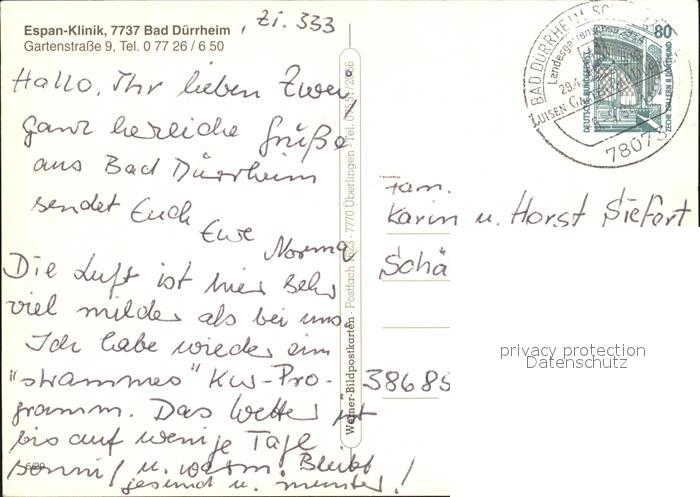 Espan-Klinik, 7737 Bad Dürrheim, Zi. 333
Gartenstraße 9, Tel. 0 77 26 / 6 50
Hallo, Ihr lieben Zwei,
ganz herzliche Grüße
aus Bad Dürrheim
sendet Euch
Eure Norma
Die Luft ist hier sehr
viel milder als bei uns.
Ich habe wieder ein
"strammes" Kur-Pro-
gramm. Das Wetter ist
bis auf wenige Tage
sonnig u. warm. Bleibt
gesund u. munter!
Werner-Bildpostkarten · Postfach · 7770 Überlingen · Tel.
BAD DÜRRHEIM
Landesgartenschau
29.4.
LUISEN-GARTEN
78073
80
DEUTSCHE BUNDESPOST
ZECHE ZOLLERN II DORTMUND
Fam.
Karin u. Horst Siefert
Schä
38685
privacy protection
Datenschutz